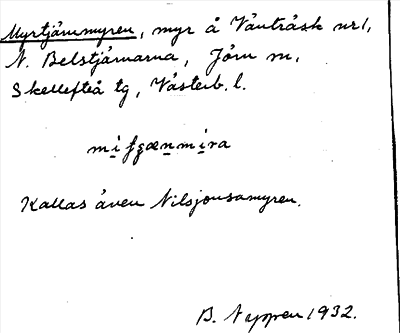 Myrtjärnmyren, myr å Vänträsk nr 1,
N. Belstjärnarna, Jörn sn,
Skellefteå tg, Västerb. l.
Kallas även Nilsjonsamyren.
B. Nyppen 1932.